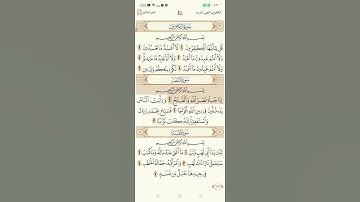 سورة الكافرون
بسم الله الرحمن الرحيم
قل يا أيها الكافرون ۝ لا أعبد ما تعبدون ۝
ولا أنتم عابدون ما أعبد ۝ ولا أنا عابد ما عبدتم ۝
ولا أنتم عابدون ما أعبد ۝ لكم دينكم ولي دين ۝
سورة النصر
بسم الله الرحمن الرحيم
إذا جاء نصر الله والفتح ۝ ورأيت الناس
يدخلون في دين الله أفواجا ۝ فسبح بحمد ربك
واستغفره إنه كان توابا ۝
سورة المسد
بسم الله الرحمن الرحيم
تبت يدا أبي لهب وتب ۝ ما أغنى عنه ماله وما كسب ۝
سيصلى نارا ذات لهب ۝ وامرأته حمالة الحطب ۝
في جيدها حبل من مسد ۝